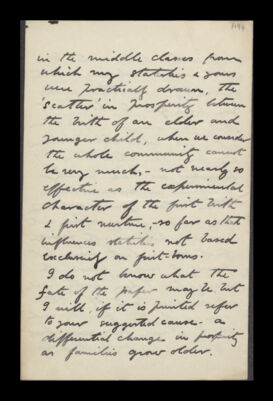 in the middle classes from
which my statistics & yours
were practically drawn, the
'scatter' in prosperity between
the birth of an elder and
younger child, when we consider
the whole community cannot
be very much, - not nearly so
effective as the experimental
character of the first birth
& first nurture, - so far as that
influences statistics not based
exclusively on first-borns.
I do not know what the
fate of the paper may be but
I will, if it is printed refer
to your suggested cause - a
differential change in prosperity
as families grow older.